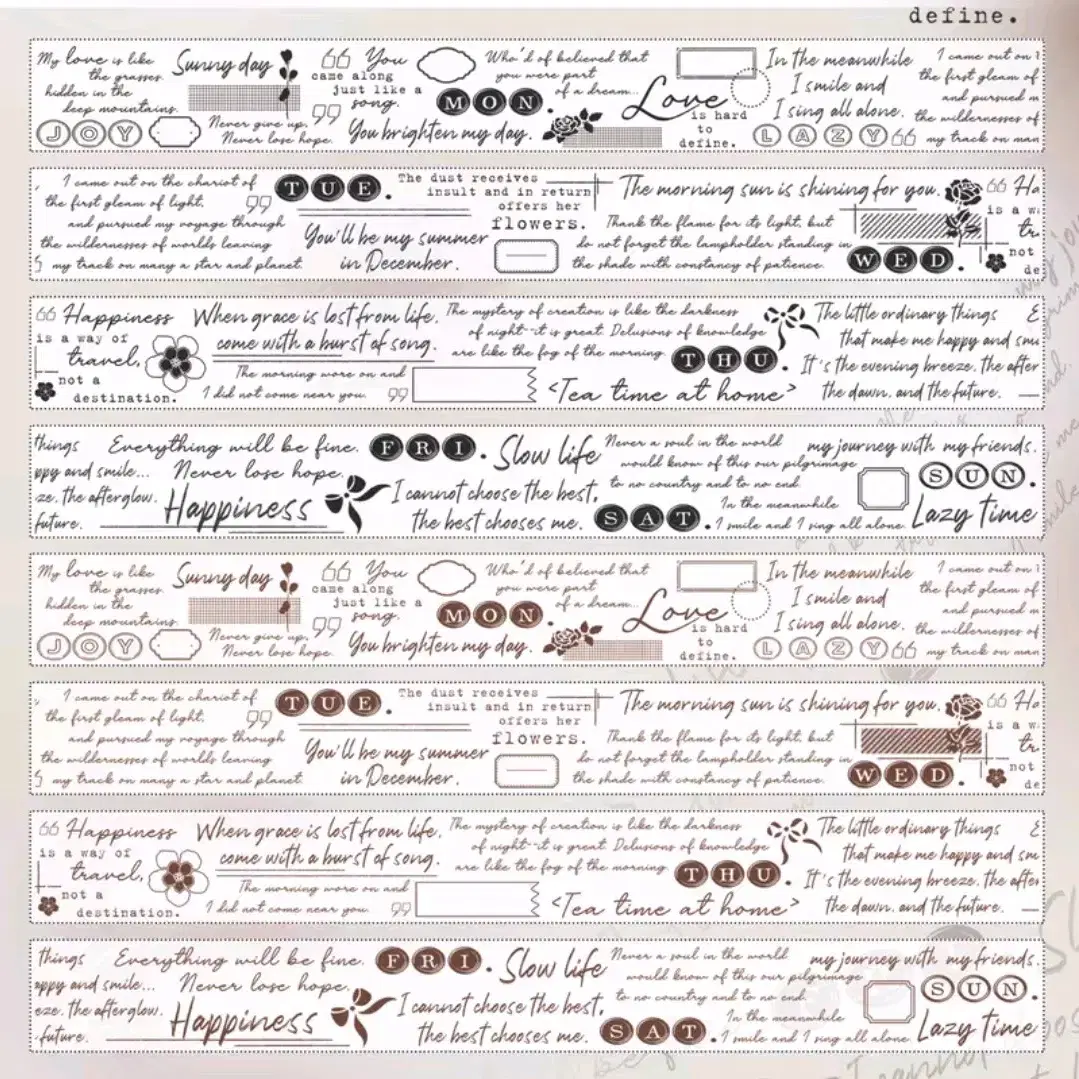 define.
My love is like
the grasses
hidden in the
deep mountains.
JOY
Sunny day
Never give up,
Never lose hope.
“ You
came along
just like a
song. ”
MON.
You brighten my day.
Who'd of believed that
you were part
of a dream...
Love
is hard
to
define.
In the meanwhile
I smile and
I sing all alone.
LAZY
“
I came out on
the first gleam of
and pursued m
the wildernesses of
my track on man
I came out on the chariot of
the first gleam of light,
and pursued my voyage through
the wildernesses of worlds leaving
my track on many a star and planet.
”
TUE.
You'll be my summer
in December.
The dust receives
insult and in return
offers her
flowers.
The morning sun is shining for you.
Thank the flame for its light, but
do not forget the lampholder standing in
the shade with constancy of patience.
WED.
“ Ha
is a w
tr
not
de
“ Happiness
is a way of
travel,
not a
destination.
When grace is lost from life,
come with a burst of song.
The morning wore on and
I did not come near you. ”
The mystery of creation is like the darkness
of night-it is great. Delusions of knowledge
are like the fog of the morning.
THU.
<Tea time at home>
The little ordinary things
that make me happy and smi
It's the evening breeze, the after
the dawn, and the future.
E
things
ppy and smile...
ze, the afterglow,
future.
Everything will be fine.
Never lose hope.
Happiness
FRI.
Slow life
I cannot choose the best,
the best chooses me.
Never a soul in the world
would know of this our pilgrimage
to no country and to no end.
SAT.
In the meanwhile
I smile and I sing all alone.
my journey with my friends.
SUN.
Lazy Time
My love is like
the grasses
hidden in the
deep mountains.
JOY
Sunny day
Never give up,
Never lose hope.
“ You
came along
just like a
song. ”
MON.
You brighten my day.
Who'd of believed that
you were part
of a dream...
Love
is hard
to
define.
In the meanwhile
I smile and
I sing all alone.
LAZY
“
I came out on
the first gleam of
and pursued m
the wildernesses of
my track on man
I came out on the chariot of
the first gleam of light,
and pursued my voyage through
the wildernesses of worlds leaving
my track on many a star and planet.
”
TUE.
You'll be my summer
in December.
The dust receives
insult and in return
offers her
flowers.
The morning sun is shining for you.
Thank the flame for its light, but
do not forget the lampholder standing in
the shade with constancy of patience.
WED.
“ Ha
is a w
tr
not
de
“ Happiness
is a way of
travel,
not a
destination.
When grace is lost from life,
come with a burst of song.
The morning wore on and
I did not come near you. ”
The mystery of creation is like the darkness
of night-it is great. Delusions of knowledge
are like the fog of the morning.
THU.
<Tea time at home>
The little ordinary things
that make me happy and sm
It's the evening breeze, the after
the dawn, and the future.
E
things
ppy and smile...
eze, the afterglow,
future.
Everything will be fine.
Never lose hope.
Happiness
FRI.
Slow life
I cannot choose the best,
the best chooses me.
Never a soul in the world
would know of this our pilgrimage
to no country and to no end.
SAT.
In the meanwhile
I smile and I sing all alone.
my journey with my friends.
SUN.
Lazy Time